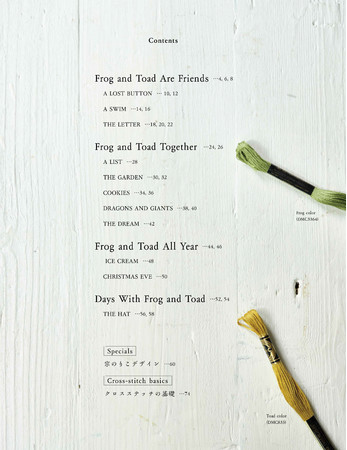 Contents
Frog and Toad Are Friends …4, 6, 8
A LOST BUTTON … 10, 12
A SWIM …14, 16
THE LETTER …18, 20, 22
Frog and Toad Together …24, 26
A LIST …28
THE GARDEN …30, 32
COOKIES …34, 36
DRAGONS AND GIANTS …38, 40
THE DREAM …42
Frog and Toad All Year …44, 46
ICE CREAM …48
CHRISTMAS EVE …50
Days With Frog and Toad …52, 54
THE HAT …56, 58
Specials
デザイン …60
Cross-stitch basics
クロスステッチの基礎 …74
Frog color
Toad color